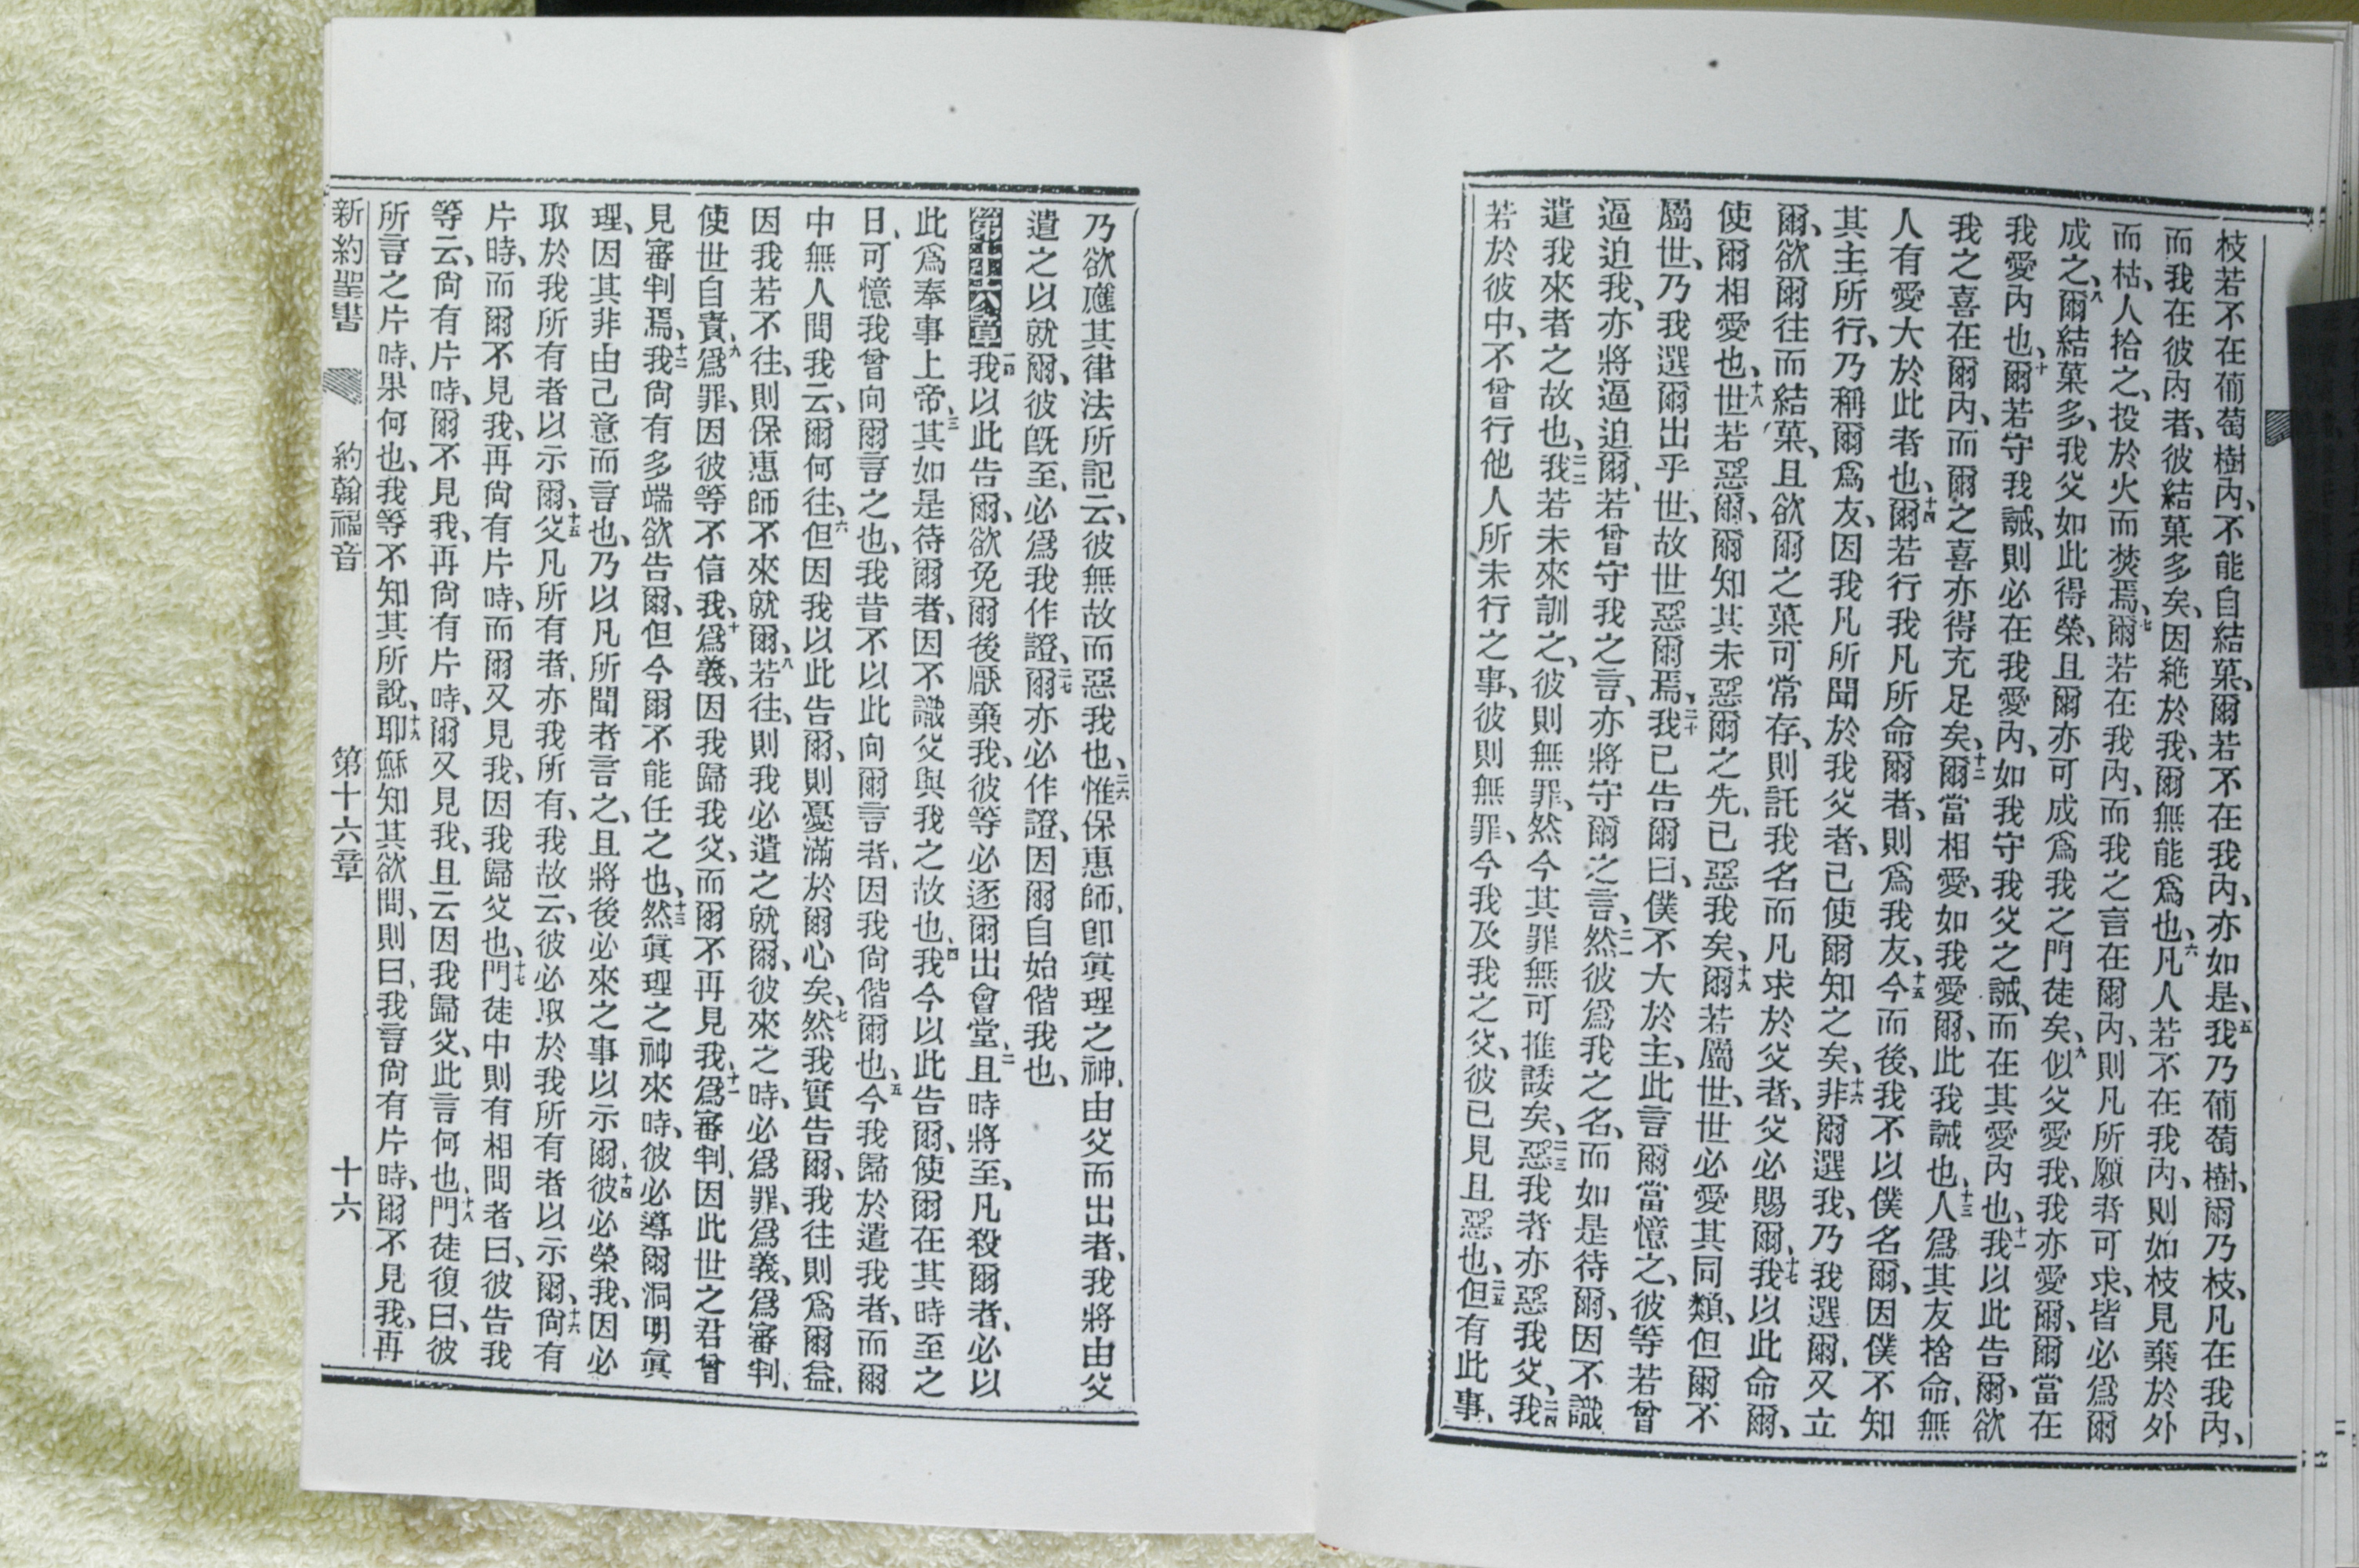 枝若不在葡萄樹內、不能自結菓、爾若不在我內、亦如是、五我乃葡萄樹、爾乃枝、凡在我內、
而我在彼內者、彼結菓多矣、因絶於我、爾無能爲也、六凡人若不在我內、則如枝見棄於外
而枯、人拾之、投於火而焚焉、七爾若在我內、而我之言在爾內、則凡所願者可求、皆必爲爾
成之、八爾結菓多、我父如此得榮、且爾亦可成爲我之門徒矣、九似父愛我、我亦愛爾、爾當在
我愛內也、十爾若守我誡、則必在我愛內、如我守我父之誡、而在其愛內也、十一我以此告爾、欲
我之喜在爾內、而爾之喜亦得充足矣、十二爾當相愛、如我愛爾、此我誡也、十三人爲其友捨命、無
人有愛大於此者也、十四爾若行我凡所命爾者、則爲我友、十五今而後、我不以僕名爾、因僕不知
其主所行、乃稱爾爲友、因我凡所聞於我父者、已使爾知之矣、十六非爾選我、乃我選爾、又立
爾、欲爾往而結菓、且欲爾之菓可常存、則託我名而凡求於父者、父必賜爾、十七我以此命爾、
使爾相愛也、十八世若惡爾、爾知其未惡爾之先、已惡我矣、十九爾若屬世、世必愛其同類、但爾不
屬世、乃我選爾出乎世、故世惡爾焉、二十我已告爾曰、僕不大於主、此言爾當憶之、彼等若曾
逼迫我、亦將逼迫爾、若曾守我之言、亦將守爾之言、二一然彼爲我之名、而如是待爾、因不識
遣我來者之故也、二二我若未來訓之、彼則無罪、然今其罪無可推諉矣、二三惡我者亦惡我父、二四我
若於彼中、不曾行他人所未行之事、彼則無罪、今我及我之父、彼已見且惡也、二五但有此事、
乃欲應其律法所記云、彼無故而惡我也、二六惟保惠師、卽眞理之神、由父而出者、我將由父
遣之以就爾、彼旣至、必爲我作證、二七爾亦必作證、因爾自始偕我也、
第十六章 一我以此告爾、欲免爾後厭棄我、彼等必逐爾出會堂、二且時將至、凡殺爾者、必以
此爲奉事上帝、三其如是待爾者、因不識父與我之故也、四我今以此告爾、使爾在其時至之
日、可憶我曾向爾言之也、我昔不以此向爾言者、因我尙偕爾也、五今我歸於遣我者、而爾
中無人問我云、爾何往、六但因我以此告爾、則憂滿於爾心矣、七然我實告爾、我往則爲爾益、
因我若不往、則保惠師不來就爾、八若往、則我必遣之就爾、彼來之時、必爲罪、爲義、爲審判、
使世自責、九爲罪、因彼等不信我、十爲義、因我歸我父、而爾不再見我、十一爲審判、因此世之君曾
見審判焉、十二我尙有多端欲告爾、但今爾不能任之也、十三然眞理之神來時、彼必導爾洞明眞
理、因其非由己意而言也、乃以凡所聞者言之、且將後必來之事以示爾、十四彼必榮我、因必
取於我所有者以示爾、十五父凡所有者、亦我所有、我故云、彼必取於我所有者以示爾、十六尙有
片時、而爾不見我、再尙有片時、而爾又見我、因我歸父也、十七門徒中則有相問者曰、彼告我
等云、尙有片時、爾不見我、再尙有片時、爾又見我、且云因我歸父、此言何也、十八門徒復曰、彼
所言之片時、果何也、我等不知其所說、十九耶穌知其欲問、則曰、我言尙有片時、爾不見我、再
新約聖書 約翰福音 第十六章 十六